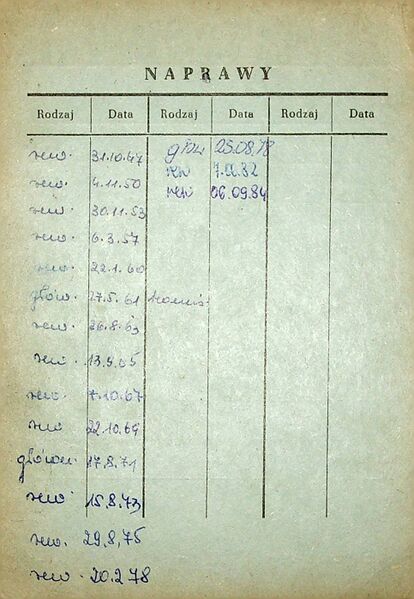 NAPRAWY
Rodzaj Data Rodzaj Data Rodzaj Data
rew. 31.10.47 głów 25.08.78
rew. 4.11.50 rew 7.IX.82
rew. 30.11.53 rew 06.09.84
rew. 6.3.57
rew. 22.1.60
głów. 27.5.61
rew. 26.8.63
rew. 13.4.65
rew. 7.10.67
rew 22.10.69
główn. 17.8.71
rew 15.8.73
rew. 29.8.75
rew. 20.2.78